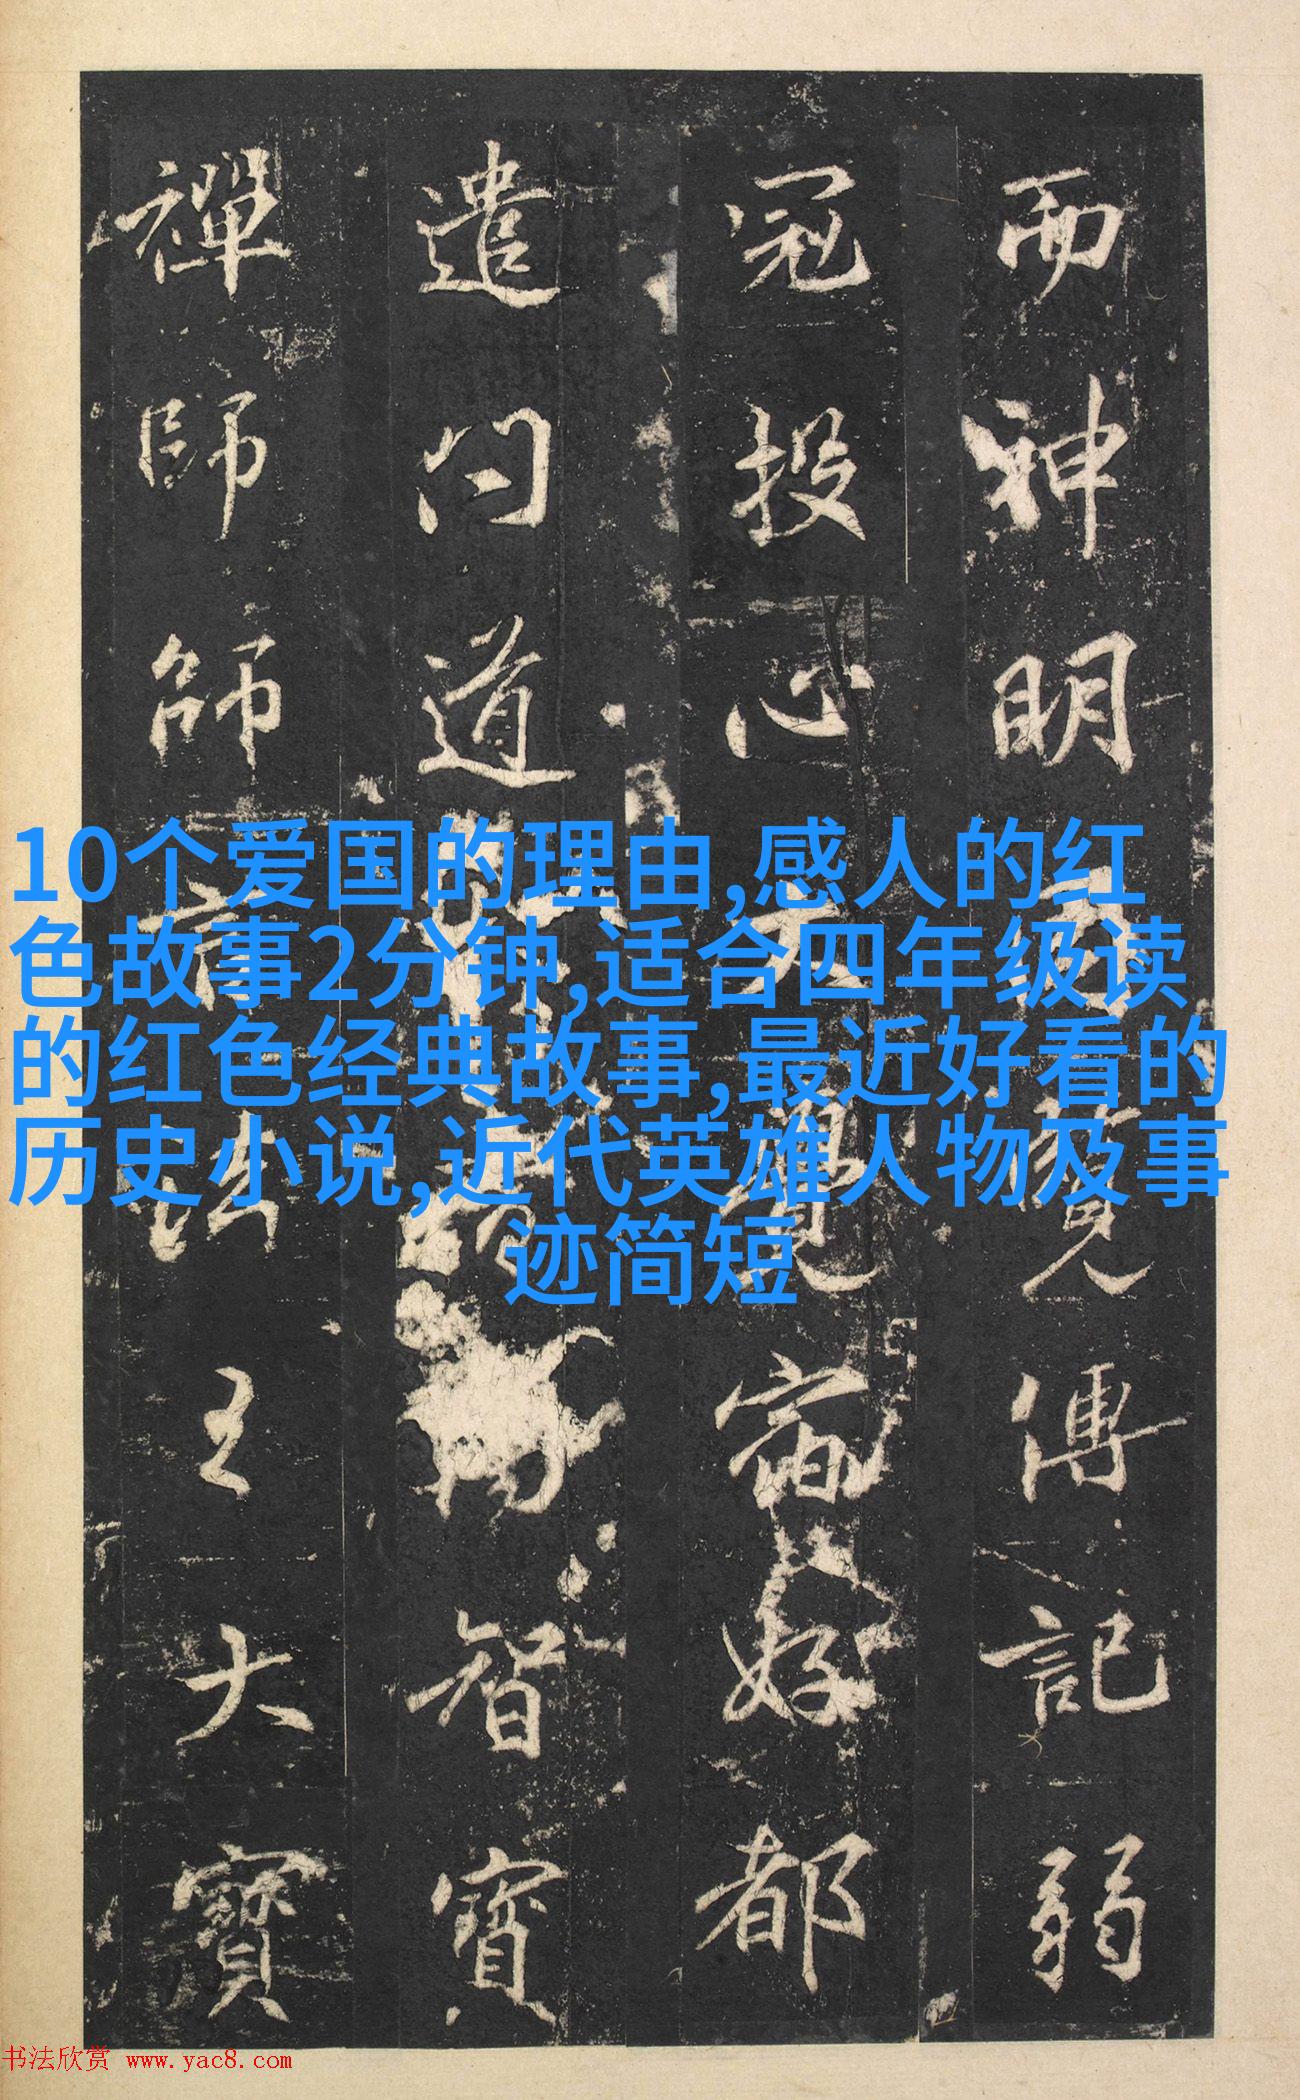 而神明覽傳記弱
冠投心覺窅好都
遣問道智寶
禪師師法王大寶
10个爱国的理由,感人的红
色故事2分钟,适合四年级读
的红色经典故事,最近好看的
历史小说,近代英雄人物及事
迹简短
书法欣赏 www.yac8.com